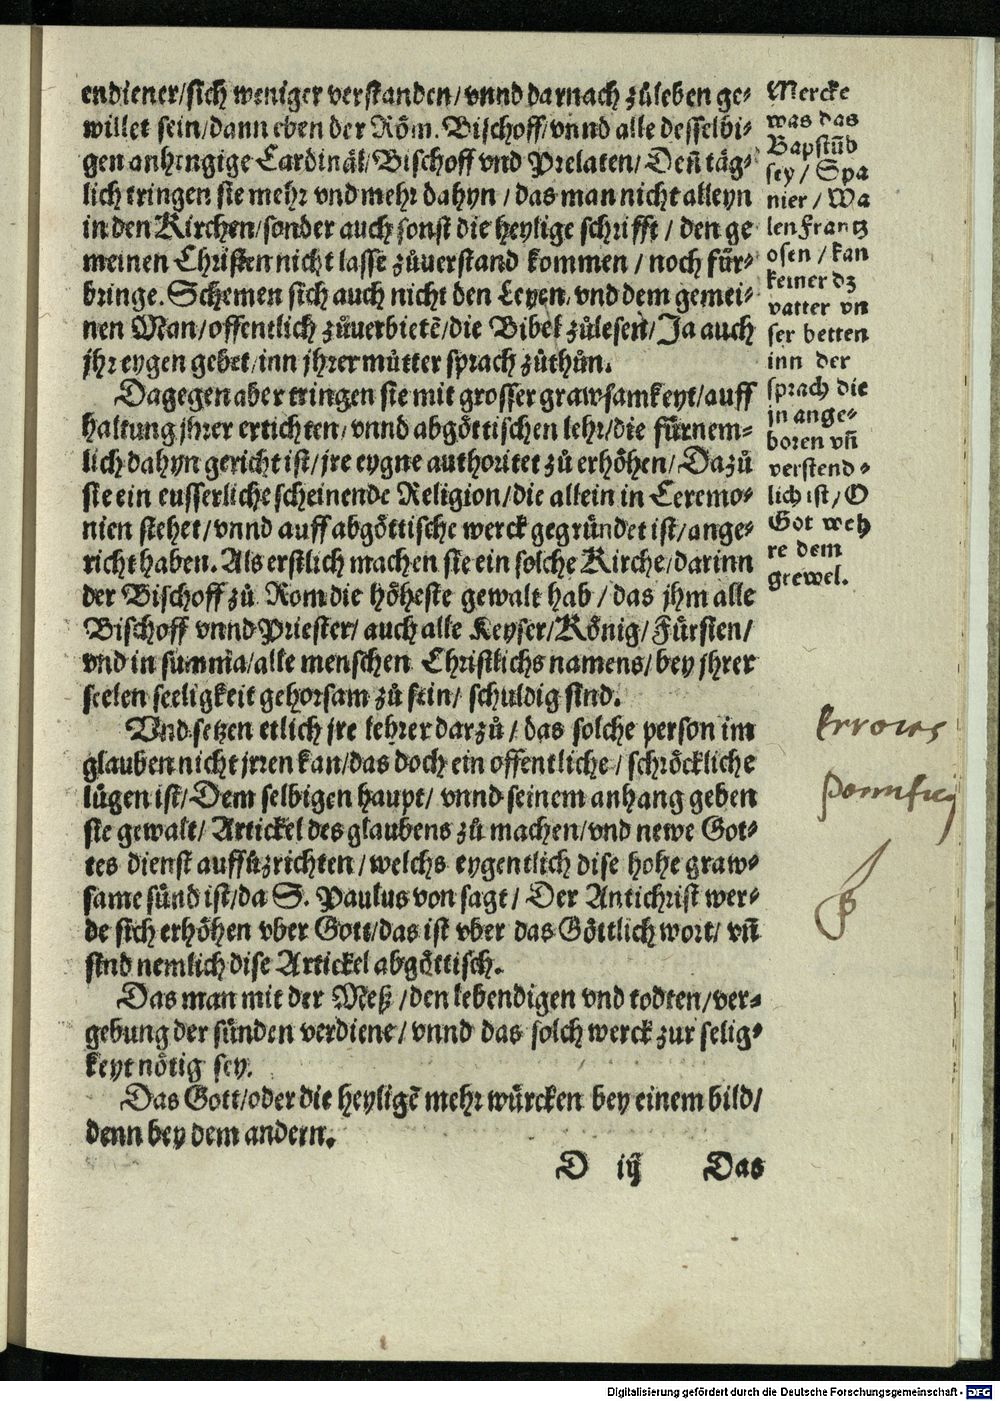 endiener/sich weniger verstanden/vnnd darnach zůleben ge⸗
willet sein/dann eben der Röm. Bischoff/vnnd alle desselbi⸗
gen anhengige Cardinäl/Bischoff vnd Prelaten/Deñ täg⸗
lich tringen sie mehr vnd mehr dahyn/das man nicht alleyn
in den Kirchen/sonder auch sonst die heylige schrifft/den ge
meinen Christen nicht lasse zůuerstand kommen/noch für⸗
bringe. Schemen sich auch nicht den Leyen/vnd dem gemei⸗
nen Man/offentlich zůuerbietẽ/die Bibel zůlesen/Ja auch
jhr eygen gebet/inn jhrer můtter sprach zůthůn.
Dagegen aber tringen sie mit grosser grawsamkeyt/auff
haltung jhrer ertichten/vnnd abgöttischen lehr/die fürnem⸗
lich dahyn gericht ist/jre eygne authoritet zů erhöhen/Dazů
sie ein eusserliche scheinende Religion/die allein in Ceremo⸗
nien stehet/vnnd auff abgöttische werck gegründet ist/ange⸗
richt haben. Als erstlich machen sie ein solche Kirche/darinn
der Bischoff zů Rom die höheste gewalt hab/das jhm alle
Bischoff vnnd Priester/auch alle Keyser/König/Fürsten/
vnd in sum̃a/alle menschen Christlichs namens/bey jhrer
seelen seeligkeit gehorsam zů sein/schuldig sind.
Vnd setzen etlich jre lehrer darzů/das solche person im
glauben nicht jrren kan/das doch ein offentliche/schröckliche
lügen ist/Dem selbigen haupt/vnnd seinem anhang geben
sie gewalt/Artickel des glaubens zů machen/vnd newe Got⸗
tes dienst auffůzrichten/welchs eygentlich dise hohe graw⸗
same sünd ist/da S. Paulus von sagt/Der Antichrist wer⸗
de sich erhöhen vber Gott/das ist vber das Göttlich wort/vñ
sind nemlich dise Artickel abgöttisch.
Das man mit der Meß/den lebendigen vnd todten/ver⸗
gebung der sünden verdiene/vnnd das solch werck zur selig⸗
keyt nötig sey.
Das Gott/oder die heyligẽ mehr würcken bey einem bild/
denn bey dem andern.
D iij Das
Mercke
was das
Bapstůb
sey/Spa
nier/Wa
len Frantz
osen/kan
keiner dz
vatter vn
ser betten
inn der
sprach die
jn ange⸗
boren vñ
verstend⸗
lich ist/O
Got weh
re dem
grewel.
Errores
Digitalisierung gefördert durch die Deutsche Forschungsgemeinschaft - DFG